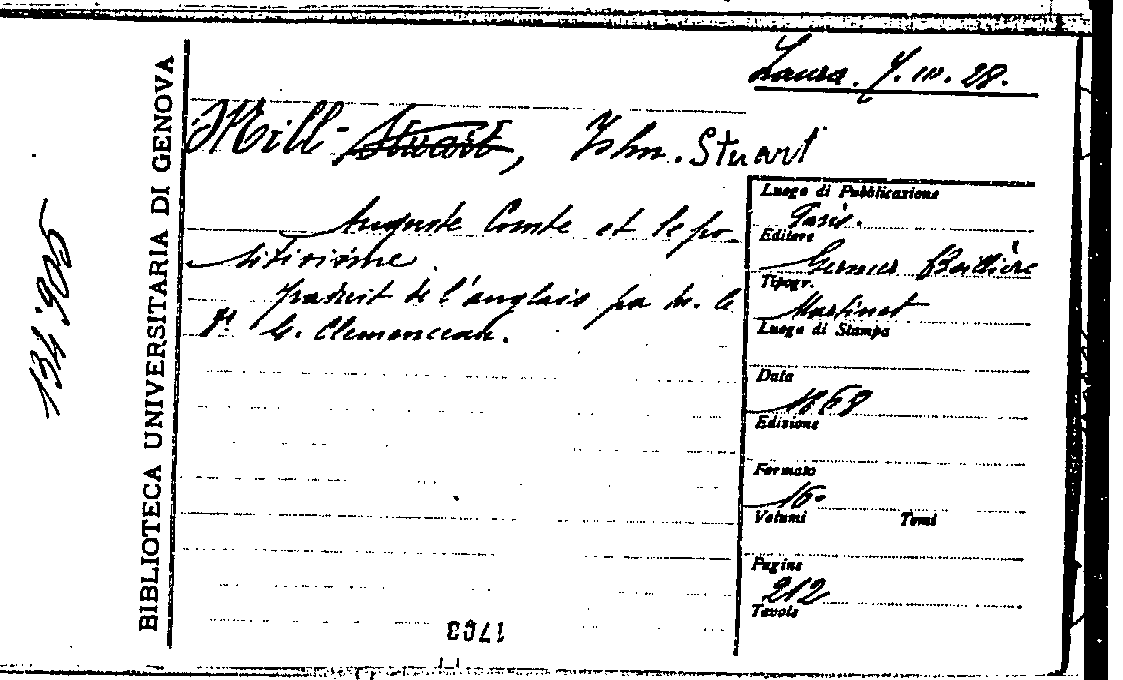 Laura. Y. III. 28.
Mill - Stuart, John. Stuart
Auguste Comte et le po-
sitivisme.
traduit de l'anglais pa M. le
Dr G. Clemenceau.
BIBLIOTECA UNIVERSITARIA DI GENOVA
134'905
Luogo di Pubblicazione
Paris.
Editore
Germer Baillière
Tipogr.
Martinet
Luogo di Stampa
Data
1868
Edizione
Formato
16°
Volumi Tomi
Pagine
212
Tavole
1703